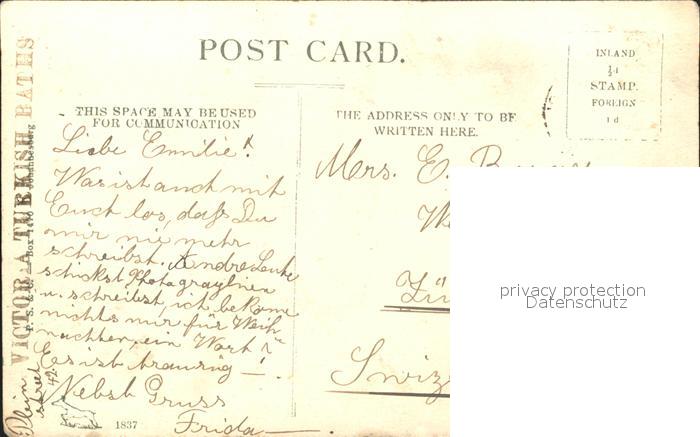 POST CARD.
INLAND
½d
STAMP.
FOREIGN
1d
THIS SPACE MAY BE USED
FOR COMMUNICATION
THE ADDRESS ONLY TO BE
WRITTEN HERE.
VICTORIA TURKISH BATHS
Johannesberg
Liebe Emilie!
Was ist auch mit
Euch los, dass Du
mir nie mehr
schreibst. Andre Leute
schickst Photograpien
u. schreibst, ich bekome
nichts nur für Weih
nachten, ein Wort?
Es ist traurig — !
Nebst Gruss
Frida
Plein
street
42.
1837
Mrs. E.
Zü
Swiz
privacy protection
Datenschutz